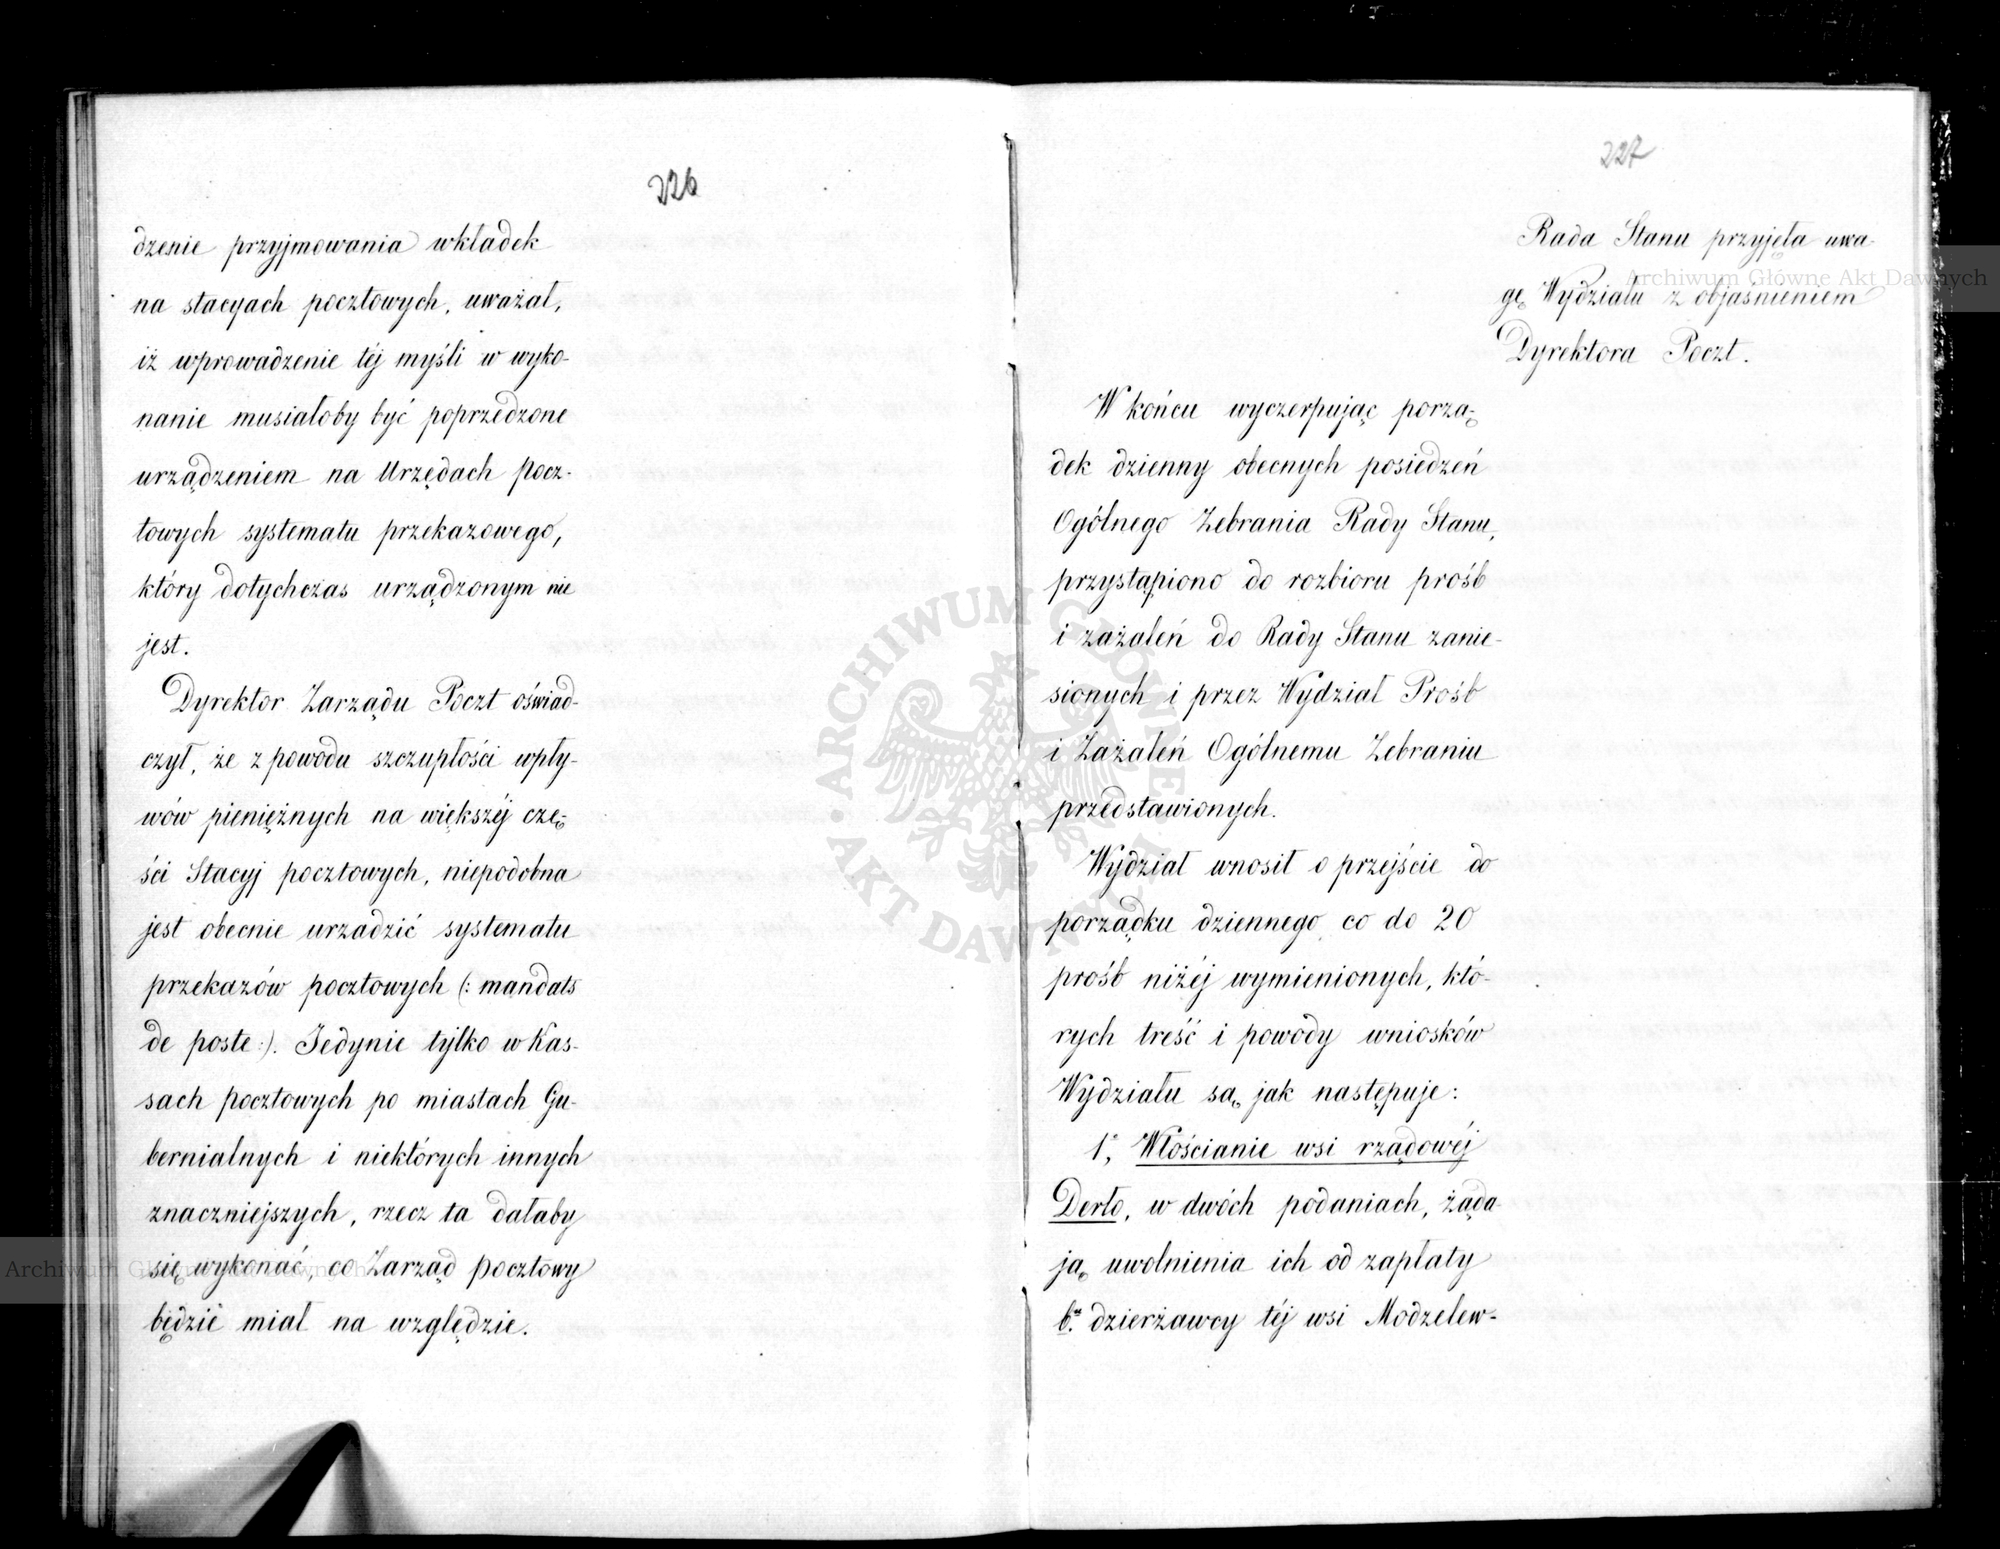 226
dzenie przyjmowania wkładek
na stacyach pocztowych, uważał,
iż wprowadzenie téj myśli w wyko-
nanie musiałoby być poprzedzone
urządzeniem na Urzędach pocz-
towych systematu przekazowego,
który dotychczas urządzonym nie
jest.
Dyrektor Zarządu Poczt oświad-
czył, że z powodu szczupłości wpły-
wów pieniężnych na większéj czę-
ści Stacyj pocztowych, niepodobna
jest obecnie urzadzić systematu
przekazów pocztowych (: mandats
de poste :). Jedynie tylko w Kas-
sach pocztowych po miastach Gu-
bernialnych i niektórych innych
znaczniejszych, rzecz ta dałaby
się wykonać, co Zarząd pocztowy
będzie miał na względzie.
227
Rada Stanu przyjęła uwa-
gę Wydziału z objaśnieniem
Dyrektora Poczt.
W końcu wyczerpując porzą-
dek dzienny obecnych posiedzeń
Ogólnego Zebrania Rady Stanu,
przystąpiono do rozbioru prośb
i zażaleń do Rady Stanu zanie-
sionych i przez Wydział Prośb
i Zażaleń Ogólnemu Zebraniu
przedstawionych.
Wydział wnosił o przejście do
porządku dziennego co do 20
prośb niżéj wymienionych, któ-
rych treść i powody wniosków
Wydziału są jak następuje:
1, Włościanie wsi rządowéj
Derło, w dwóch podaniach, żąda-
ją uwolnienia ich od zapłaty
b. dzierżawcy téj wsi Modzelew-
Archiwum Główne Akt Dawnych
Archiwum Główne Akt Dawnych
ARCHIWUM GŁÓWNE AKT DAWNYCH